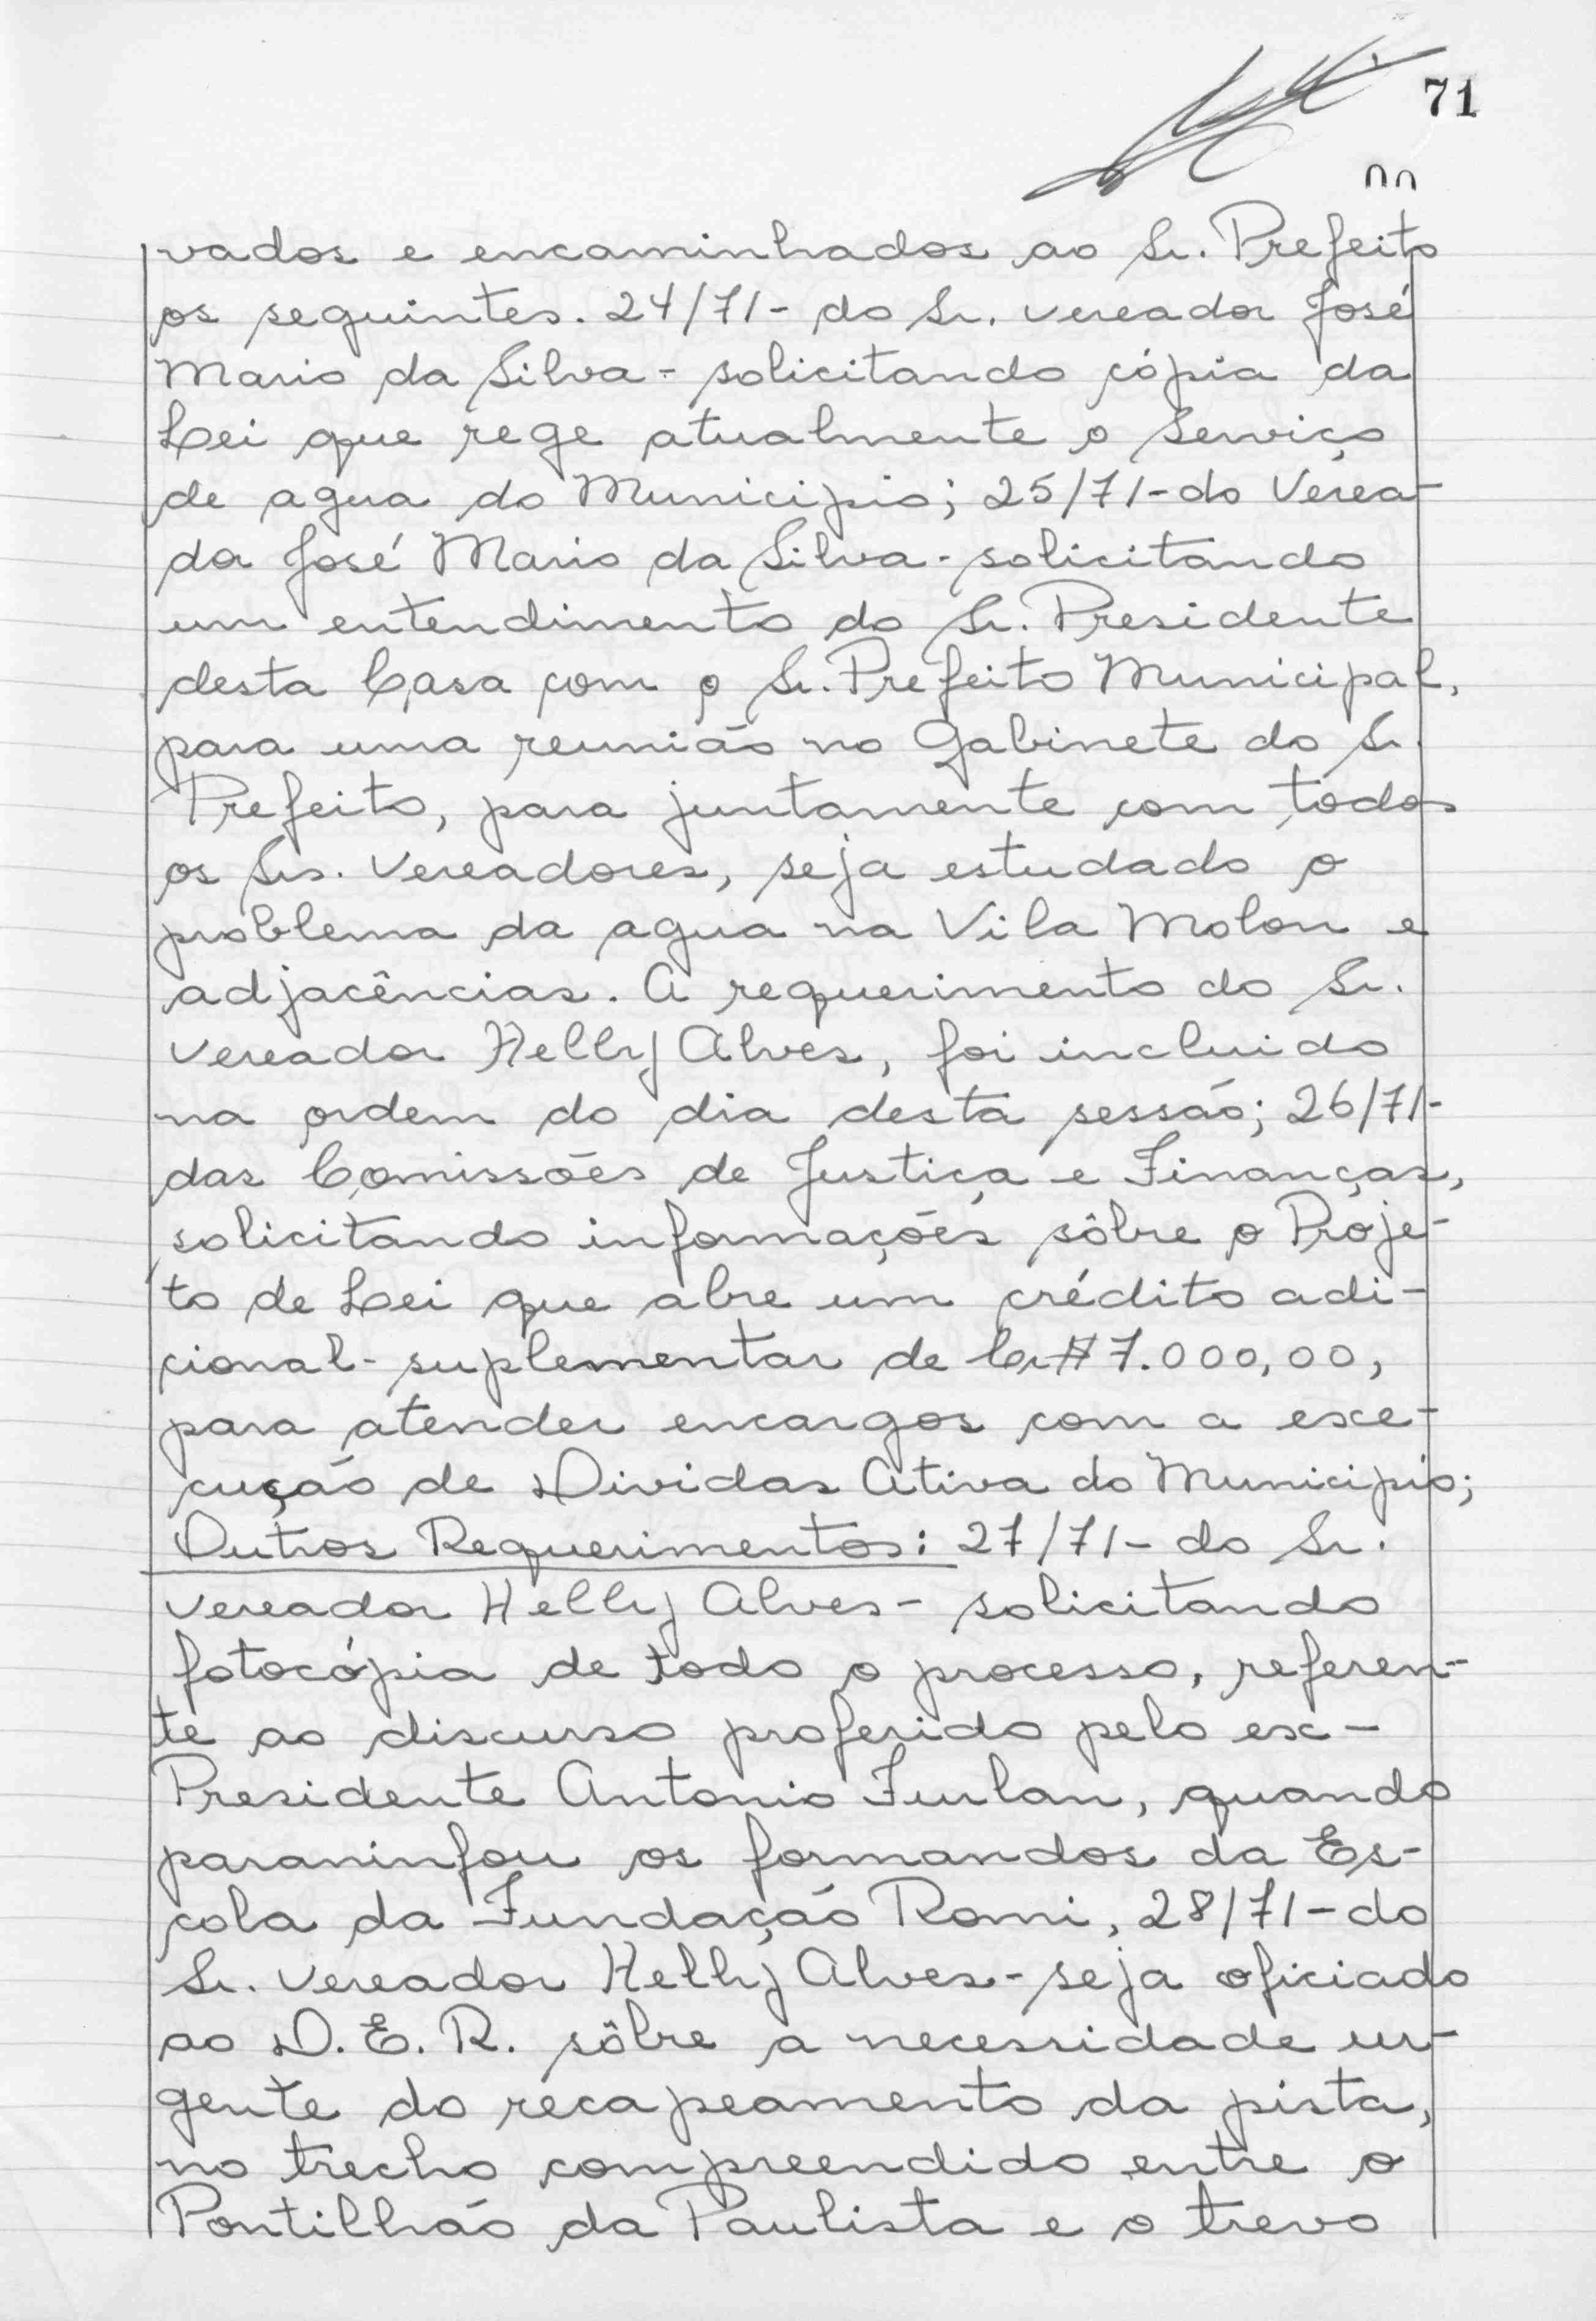 71
vados e encaminhados ao Sr. Prefeito
os seguintes. 24/71- do Sr. vereador José
Mario da Silva - solicitando cópia da
Lei que rege atualmente o Serviço
de agua do Municipio; 25/71-do Verea-
dor José Mario da Silva - solicitando
um entendimento do Sr. Presidente
desta Casa com o Sr. Prefeito Municipal,
para uma reunião no Gabinete do Sr.
Prefeito, para juntamente com todos
os Srs. Vereadores, seja estudado o
problema da agua na Vila Molon e
adjacências. A requerimento do Sr.
Vereador Helly Alves, foi incluido
na ordem do dia desta sessão; 26/71-
das Comissões de Justiça e Finanças,
solicitando informações sôbre o Proje-
to de Lei que abre um crédito adi-
cional-suplementar de Cr$ 7.000,00,
para atender encargos com a exe-
cução de Dividas Ativa do Municipio;
Outros Requerimentos: 27/71- do Sr.
Vereador Helly Alves - solicitando
fotocópia de todo o processo, referen-
te ao discurso proferido pelo ex-
Presidente Antonio Furlan, quando
paraninfou os formandos da Es-
cola da Fundação Romi, 28/71-do
Sr. Vereador Helly Alves - seja oficiado
ao D.E.R. sôbre a necessidade ur-
gente do recapeamento da pista,
no trecho compreendido entre o
Pontilhão da Paulista e o trevo